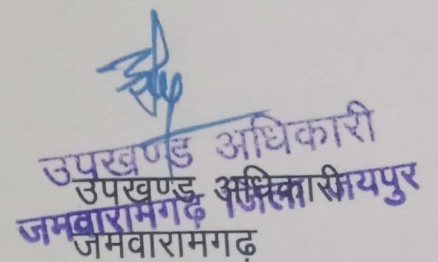 उपखण्ड अधिकारी
उपखण्ड अधिकारी
जमवारामगढ़ जिला जयपुर
जमवारामगढ़